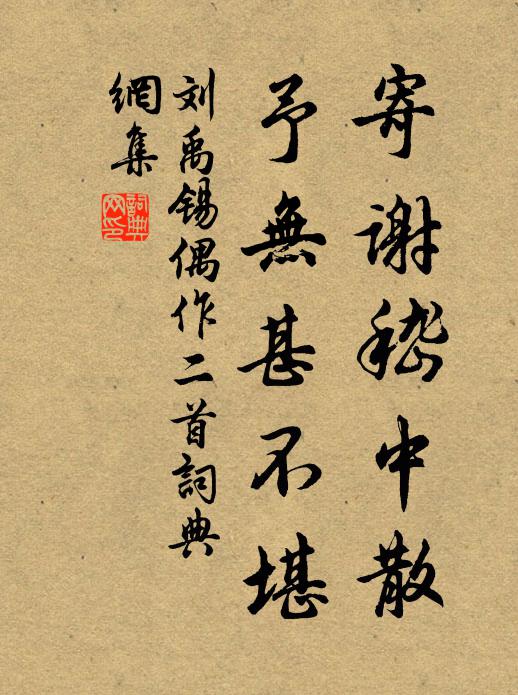 寄謝嵇中散
予無甚不堪
刘禹锡偶作二首詞典
網集
詞典网印